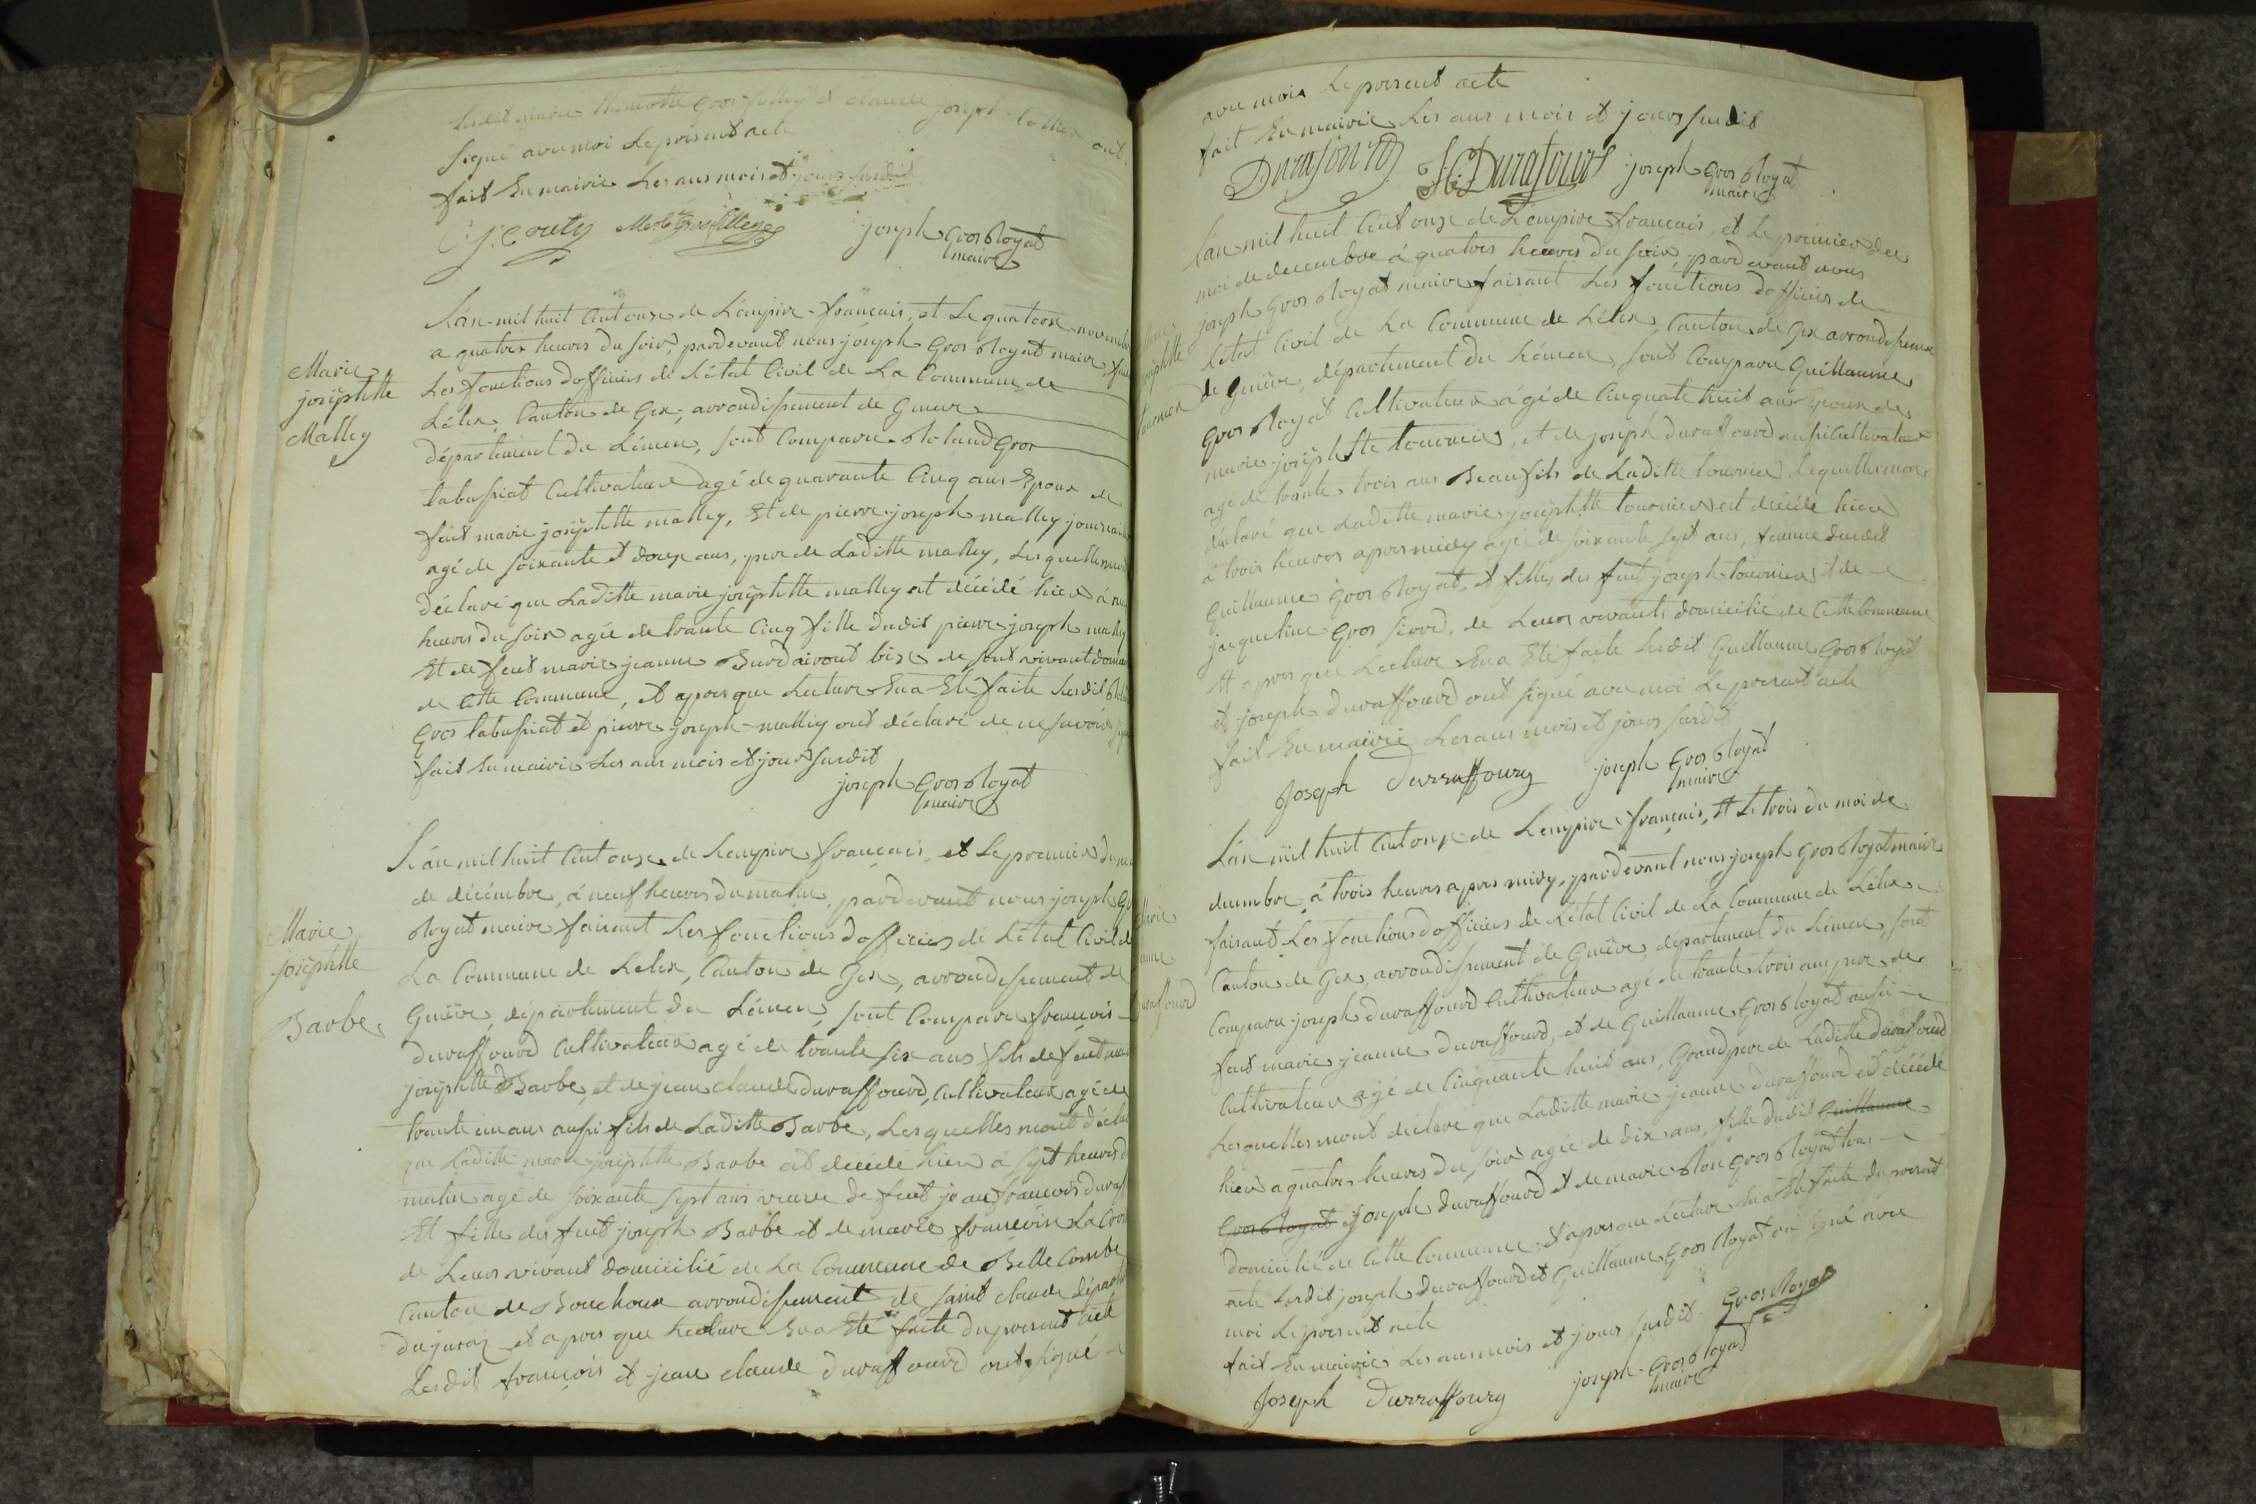 Lesdit marie Gros joseph ont
signé avec moi le present acte
fait En mairie Les ans mois et jours susdit
joseph Gros Royat
maire
L'an mil huit Cent onze de L'empire français, et Le quatorze novembre
a quatres heures du soir, pardevant nous joseph Gros Royat maire
Marie
josephtte
Malley
Les fonctions d'officiers de L'état Civil de La Commune de
Lélex, Canton de Gex, arrondissement de Geneve
département du Léman, sont Comparu Roland Gros
tabussiat Cultivateur agé de quarante Cinq ans Epoux de
fait marie josephtte malley, Et de pierre joseph malley
agé de soixante et douze ans, pere de Laditte malley, Lesquelles mont
déclaré que Laditte marie josephtte malley est décédé hier à
heures du soir agée de trante Cinq fille dudit pierre joseph malley
Et de feut marie jeanne
de Cette Commune, et apres que Lecture En a Eté faite Lesdit
Gros tabussiat et pierre joseph malley ont déclaré de ne savoir
fait En mairie Les ans mois et jours susdit
joseph Gros Royat
maire
L'an mil huit Cent onze de Lempire français, et Le premier du
de décémbre, à neuf heures du matin, pardevant nous joseph
Marie
josephtte
Barbe
Royat maire faisant Les fonctions d'officiers de L'état Civil
La Commune de Lelex, Canton de Gex, arrondissement de
Genève, département du Léman, sont Comparu françois
duraffourd Cultivateur agé de trante six ans fils de feut
josephtte Barbe, et de jean claude duraffourd, Cultivateur agé de
trante un ans aussi fils de Laditte Barbe, Lesquelles mont
que Laditte marie josephtte Barbe est décédé hier à sept heures
matin agé de soixante sept ans veuve de feut jean françois
Et fille des feut joseph Barbe et de marie françoise
de Leurs vivant domicilié de La Commune de Belle Combe
Canton de Bouchoux arrondissement de saint claude
du jura, et apres que Lecture En a Eté faite du present acte
Lesdit françois et jean claude duraffourd ont signé
avec moi Le present acte
fait En mairie Les ans mois et jours susdit
joseph Gros Royat
maire
L'an mil huit Cent onze de L'empire français, et Le premier du
moi de decembre à quatres heures du soir, pardevant nous
joseph Gros Royat maire faisant Les fonctions d'officiers de
L'état Civil de La Commune de Lélex, Canton de Gex arrondissement
de Genève, département du Léman, sont Comparu Guillaume
Gros Royat Cultivateur âgé de Cinquate huit ans Epoux de
marie josephtte tournier, et de joseph duraffourd aussi Cultivateur
agé de trante trois ans Beau fils de Laditte tournier Lesquelles mont
déclaré que Laditte marie josephtte tournier est décédé hier
à trois heures apres midy agée de soixante sept ans, femme dudit
Guillaume Gros Royat, et fille des feut joseph tournier et de
jacqueline Gros, de Leurs vivants domicilié de Cette Commune
Et apres que Lecture En a Eté faite Lesdit Guillaume Gros Royat
et joseph duraffourd ont signé avec moi Le present acte
fait En mairie Les ans mois et jours susdit
Joseph Durraffourg joseph Gros Royat
maire
L'an mil huit Cent onze de L'empire français, Et Le trois du moi de
decembre à trois heures apres midy, pardevant nous joseph Gros Royat maire
faisant Les fonctions d'officiers de L'état Civil de La Commune de Lélex
Canton de Gex, arrondissement de Genève, département du Léman, sont
Comparu joseph duraffourd Cultivateur agé de trante trois ans pere de
fait marie jeanne duraffourd, et de Guillaume Gros Royat aussi
Cultivateur agé de Cinquante huit ans, Grand pere de Laditte duraffourd
Lesquelles mont déclaré que Laditte marie jeanne duraffourd est décédé
hier a quatres heures du soir agée de dix ans, fille dudit Guillaume
Gros Royat joseph duraffourd et de marie Gros Royat tous
domicilié de Cette Commune Et apres que Lecture En a Eté faite du present
acte Lesdit joseph duraffourd et Guillaume Gros Royat on signé avec
moi Le present acte
fait En mairie Les ans mois et jours susdit Gros Royat
Joseph Durraffourg joseph Gros Royat
maire